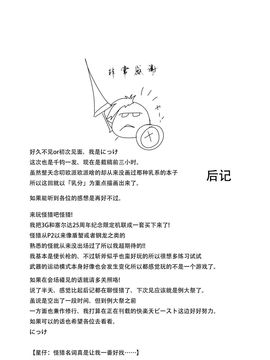 非常感谢
后记
好久不见or初次见面。我是にっけ
这次也是千钧一发。现在是截稿前三小时。
虽然整天念叨欧派欧派啥的却从来没画过那种乳系的本子
所以这回就以「乳分」为重点描画出来了。
如果能听到各位的感想是再好不过。
来玩怪猎吧怪猎!
我把3G和塞尔达25周年纪念限定机联成一套买下来了!
怪猎从P2以来像盾蟹或者钢龙之类的
熟悉的怪就从来没出场过了所以我超期待的!!
我基本是使长枪的。不过斩斧似乎也蛮好玩的所以很想多练习试试
武器的运动模式本身好像也会发生变化所以都感觉玩的不是一个游戏了。
如果在会场碰见的话就请多关照啦!
说了半天、感觉比起后记都在聊怪猎了、下次见应该就是例大祭了。
虽说是空出了一段时间、但到例大祭之前
一方面也兼作修行、我打算在正在刊载的快楽天ビースト这边好好努力。
如果可以的话也希望各位去看看。
にっけ
【星仔：怪猎名词真是让我一番好找……】